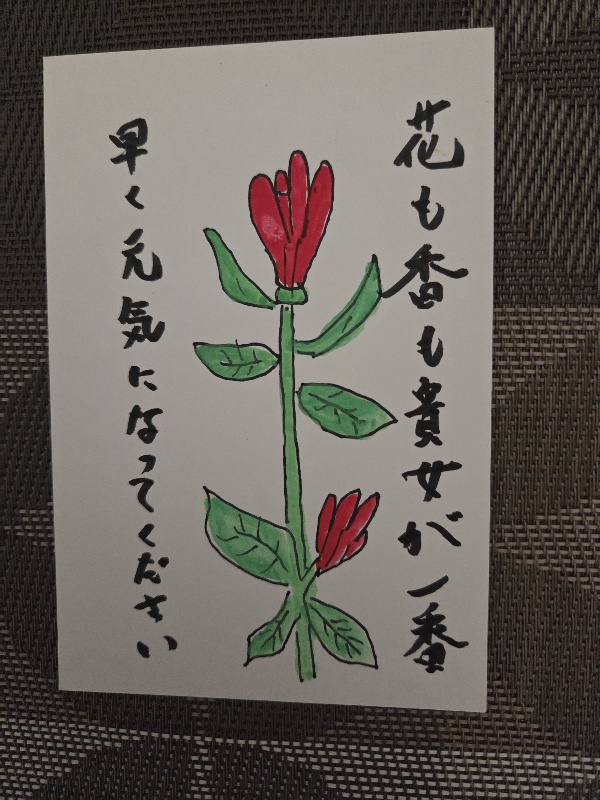 花も香も貴女が一番
早く元気になってください